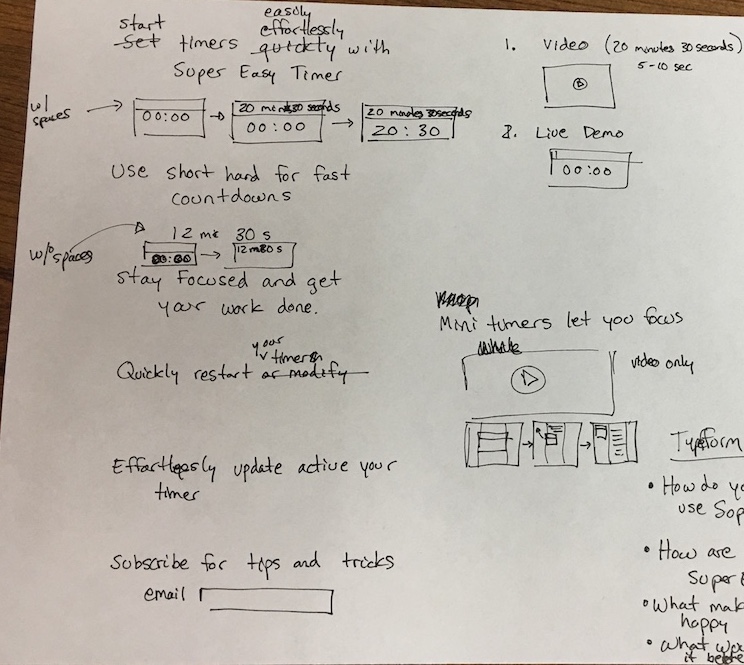 easily
start effortlessly
Set timers quickly with
Super Easy Timer
w/ spaces
00:00
20 minutes 30 seconds
00:00
20 minutes 30 seconds
20:30
Use short hard for fast
countdowns
12 m 30 s
w/o spaces
00:00
12 m 30 s
Stay Focused and get
your work done.
your
timer
Quickly restart or modify
Effortlessly update active your
timer
Subscribe for tips and tricks
email
1. Video (20 minutes 30 seconds)
5-10 sec
2. Live Demo
00:00
Mini timers let you focus
while
video only
Typeform
• How do yo
use Sup
• How are
Super E
• What mak
happy
• What wo
it better